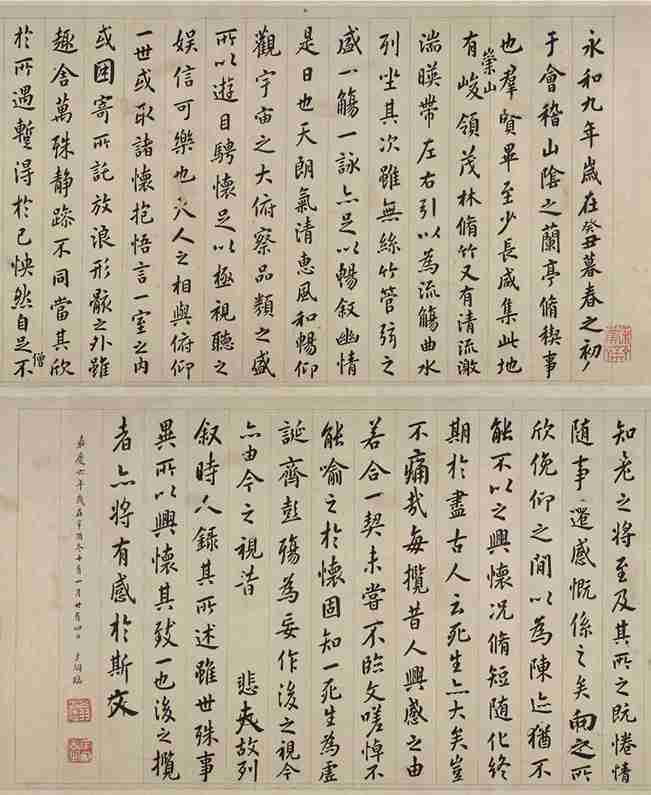 永和九年歲在癸丑暮春之初
于會稽山陰之蘭亭脩稧事
也羣賢畢至少長咸集此地
有崇山峻領茂林脩竹又有清流激
湍暎帶左右引以為流觴曲水
列坐其次雖無絲竹管弦之
盛一觴一詠亦足以暢叙幽情
是日也天朗氣清惠風和暢仰
觀宇宙之大俯察品類之盛
所以遊目騁懷足以極視聽之
娛信可樂也夫人之相與俯仰
一世或取諸懷抱悟言一室之內
或因寄所託放浪形骸之外雖
趣舍萬殊静躁不同當其欣
於所遇蹔得於己怏然自足不
僧
知老之將至及其所之既惓情
隨事遷感慨係之矣向之所
欣俛仰之間以為陳迹猶不
能不以之興懷況脩短隨化終
期於盡古人云死生亦大矣豈
不痛哉每攬昔人興感之由
若合一契未嘗不臨文嗟悼不
能喻之於懷固知一死生為虛
誕齊彭殤為妄作後之視今
亦由今之視昔 悲夫故列
叙時人錄其所述雖世殊事
異所以興懷其致一也後之攬
者亦將有感於斯文
嘉慶六年歲在辛酉冬十有一月廿有四日 臨